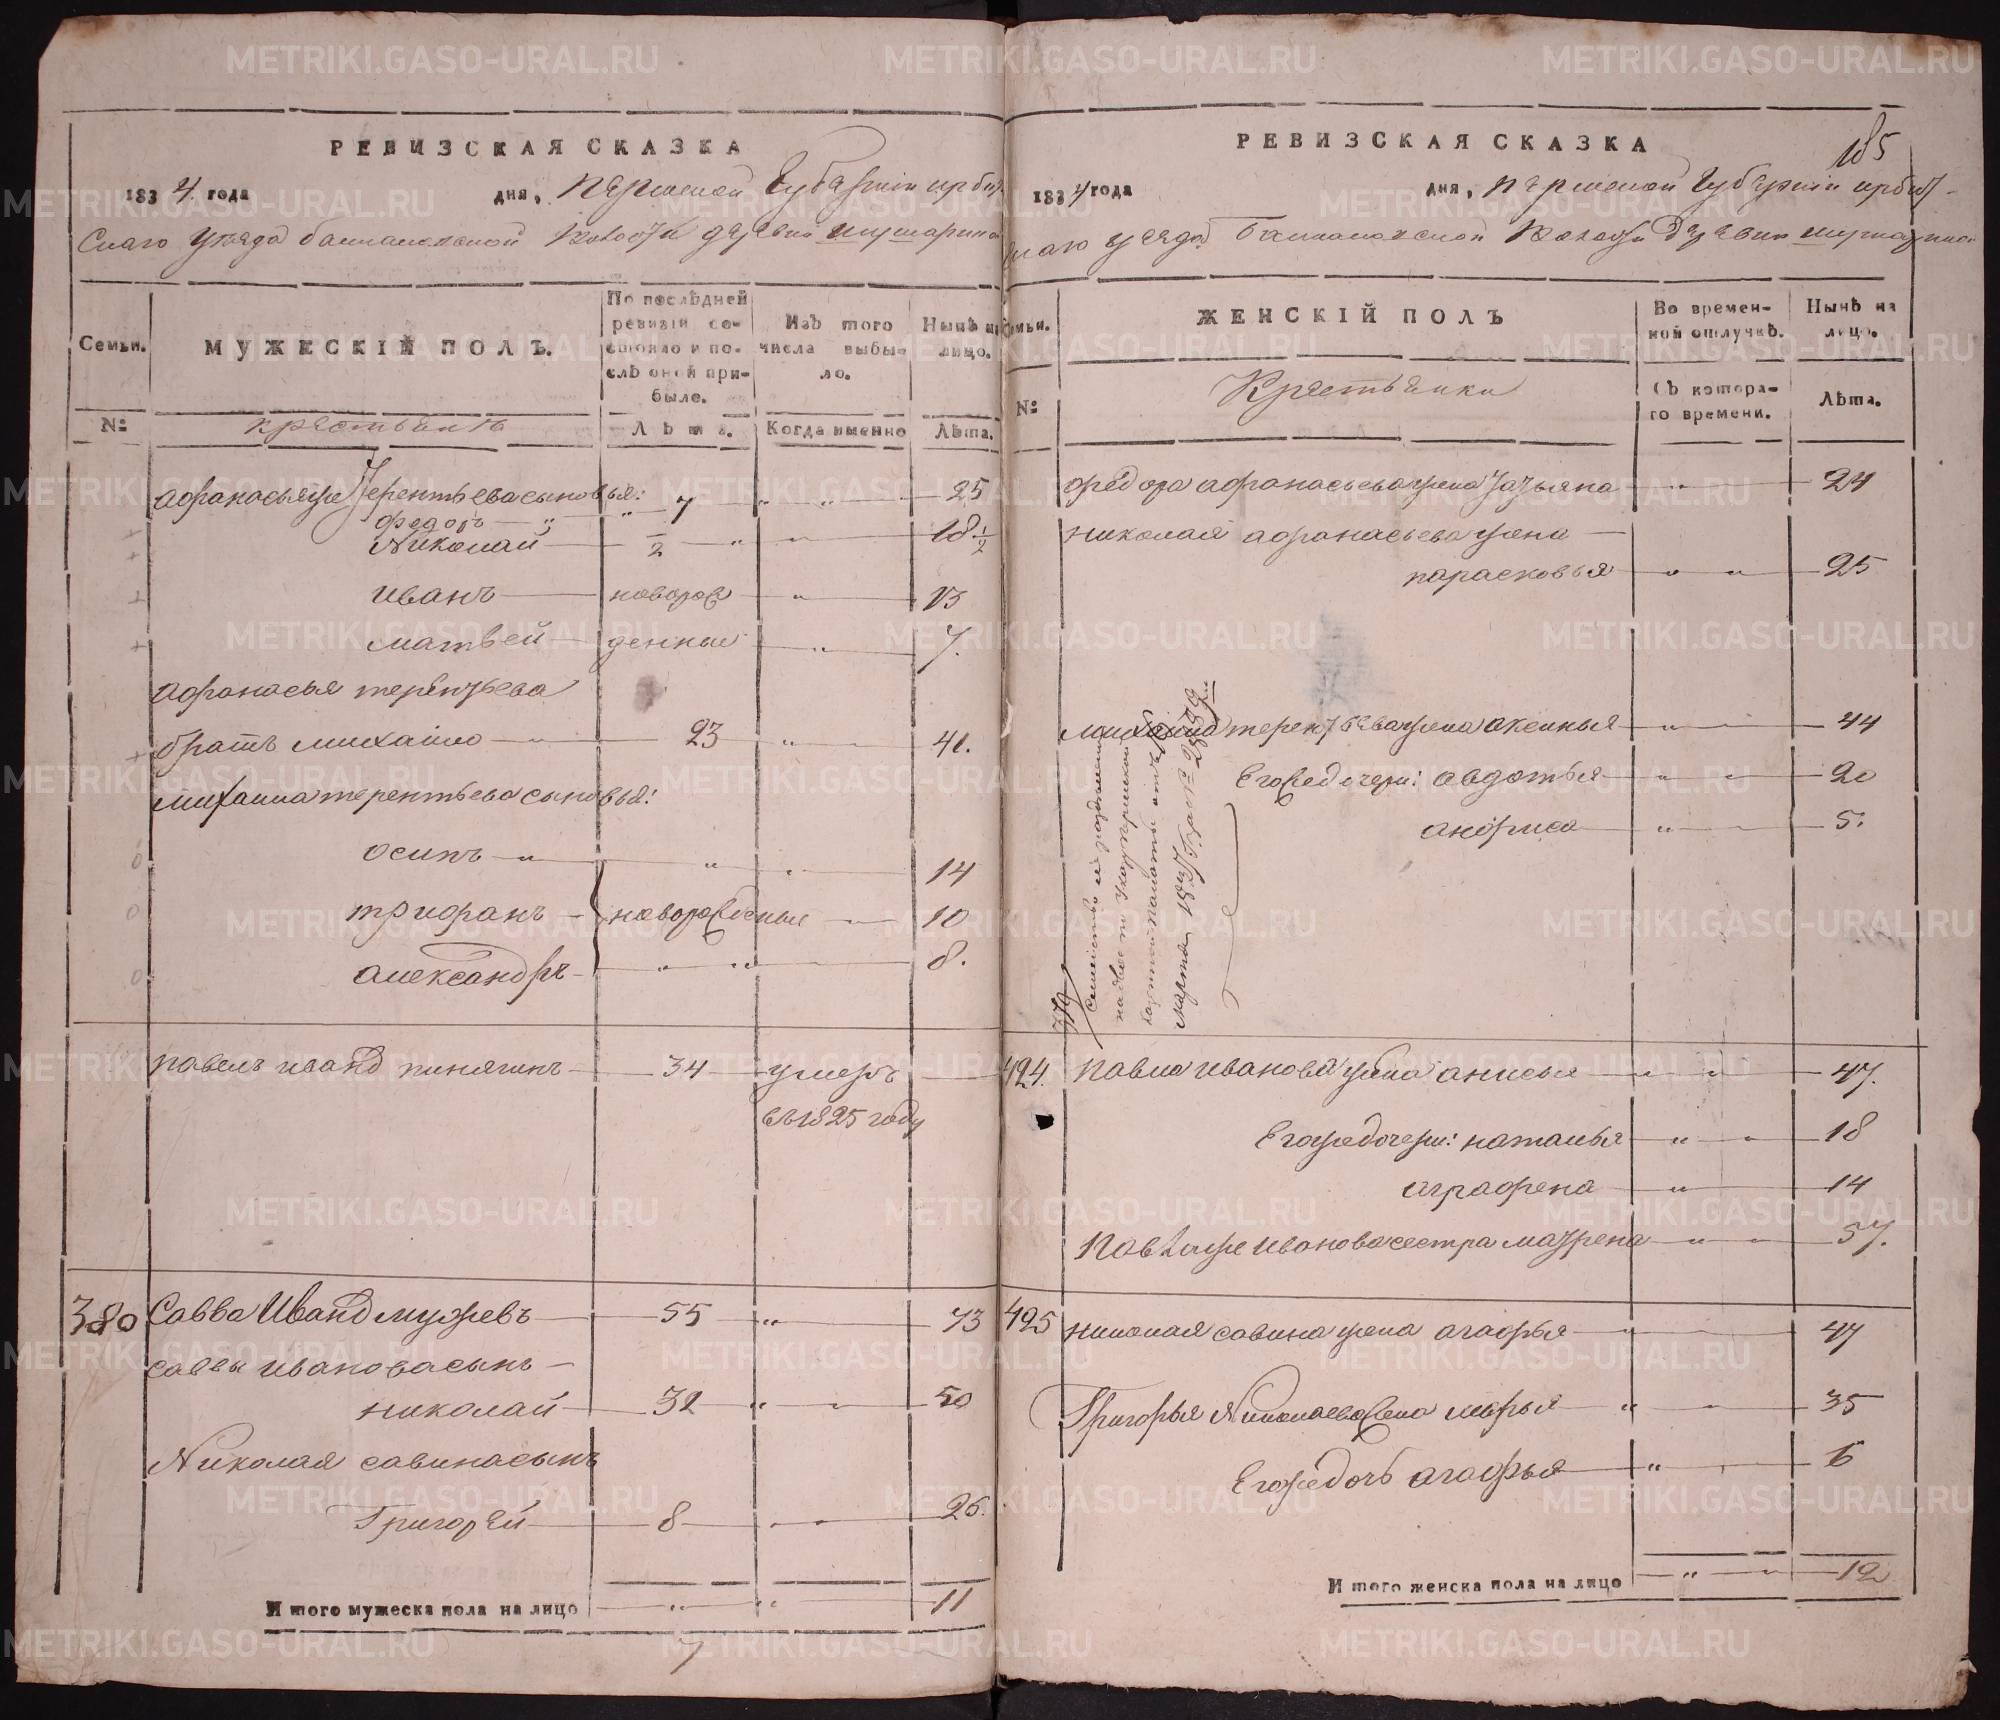 РЕВИЗСКАЯ СКАЗКА
1834 года дня, пермской Губернїи ирбит
скаго уезда волости деревни
Семьи. МУЖЕСКІЙ ПОЛЪ. По послѣдней ревизіи состояло и послѣ оной прибыло. Изъ того числа выбыло. Нынѣ на лицо.
№ крестьянѣ Лѣта. Когда именно Лѣта.
афанасья же Терентьева сыновья:
федоръ „ 7 „ „ 25
Николай 1/2 „ „ 18 1/2
иванъ новорож „ 13
матвей денные „ 7.
афанасья терентьева
братъ михайло 23 „ 41.
михаила терентьева сыновья:
осипъ „ „ „ 14
трифанъ новорожденные 10
александръ „ „ 8.
павелъ иванов 34 умеръ
въ 1825 году
380 Савва Иванов 55 „ 73
саввы иванова сынъ
николай 32 „ „ 50
Николая савина сынъ
Григорей 8 „ „ 26.
Итого мужеска пола на лицо „ „ 11
7
РЕВИЗСКАЯ СКАЗКА
185
1834 года дня, пермской Губернїи ирбит-
скаго уезда волости деревни
Семьи. ЖЕНСКІЙ ПОЛЪ Во временной отлучкѣ. Нынѣ на лицо.
№ Крестьянки Съ котораго времени. Лѣта.
федора афанасьева жена татьяна „ 24
николая афанасьева жена
парасковья „ „ 25
михайла терентьева жена аксинья „ „ 44
Его же дочери: авдотья „ „ 20
анфиса „ 5.
379
424. павла иванова жена анисья „ „ 47.
Его же дочери: наталья „ „ 18
аграфена „ 14
Павла же иванова сестра матрена „ „ 57.
425 николая савина жена агафья „ 47
Григорья Николаева жена марья „ „ 35
Его же дочь агафья „ 6
Итого женска пола на лицо „ „ 12
METRIKI.GASO-URAL.RU